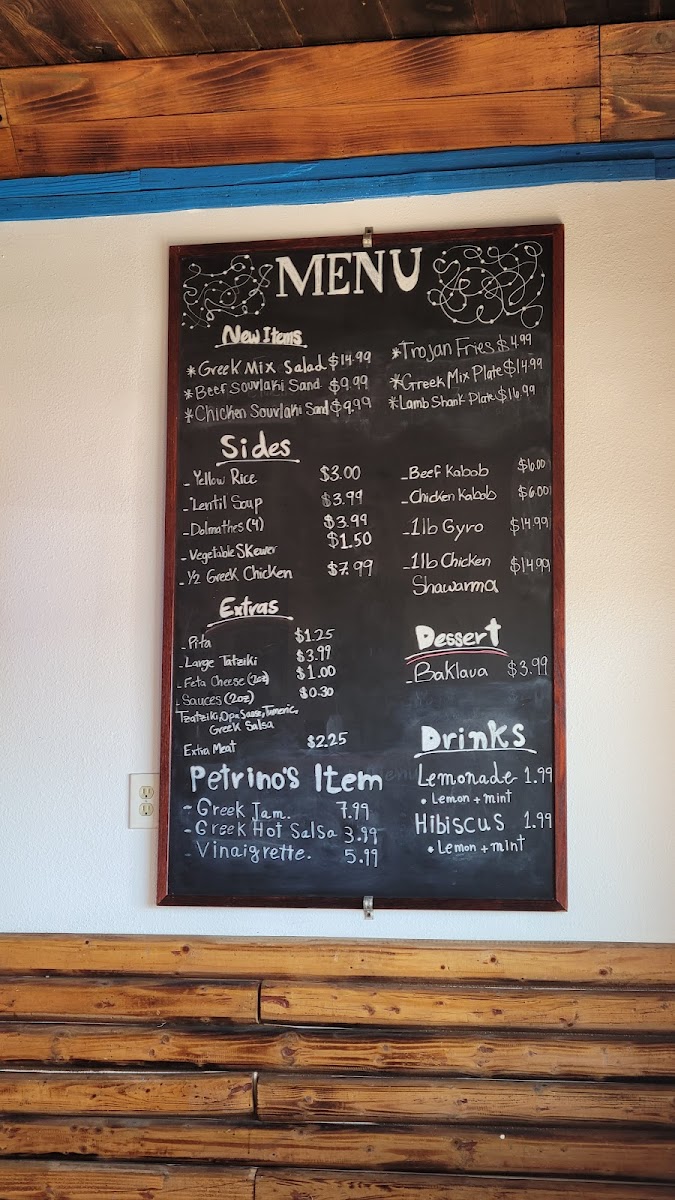 MENU
New Items
*Greek Mix Salad $14.99
*Beef Souvlaki Sand $9.99
*Chicken Souvlaki Sand $9.99
*Trojan Fries $4.99
*Greek Mix Plate $14.99
*Lamb Shank Plate $16.99
Sides
- Yellow Rice $3.00
- Lentil Soup $3.99
- Dolmathes (4) $3.99
- Vegetable Skewer $1.50
- 1/2 Greek Chicken $7.99
- Beef Kabob $6.00
- Chicken Kabob $6.00
- 1lb Gyro $14.99
- 1lb Chicken $14.99
Shawarma
Extras
- Pita $1.25
- Large Tatziki $3.99
- Feta Cheese (2oz) $1.00
- Sauces (2oz) $0.30
Tzatziki, Opa Sauce, Tumeric,
Greek Salsa
Extra Meat $2.25
Dessert
- Baklava $3.99
Petrino's Item
- Greek Jam. 7.99
- Greek Hot Salsa 3.99
- Vinaigrette. 5.99
Drinks
Lemonade 1.99
• Lemon + mint
Hibiscus 1.99
• Lemon + mint